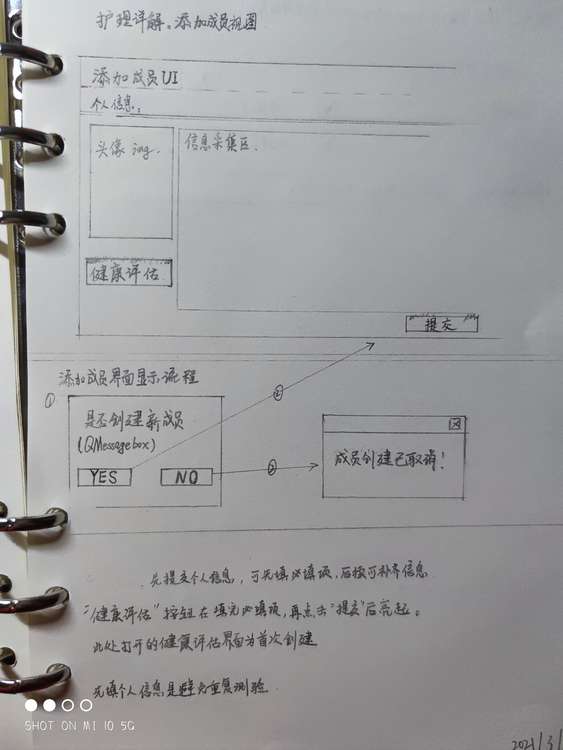 护理详解。添加成员视图
添加成员UI
个人信息:
头像 img.
信息采集区.
健康评估
提交
添加成员界面显示流程
①
是否创建新成员
(QMessagebox)
YES
NO
②
②
成员创建已取消!
先提交个人信息,可先填必填项,后续可补齐信息
"健康评估"按钮在填完必填项,再点击"提交"后亮起。
此处打开的健康评估界面为首次创建
先填个人信息是避免重复测验.
SHOT ON MI 10 5G
2021/3/